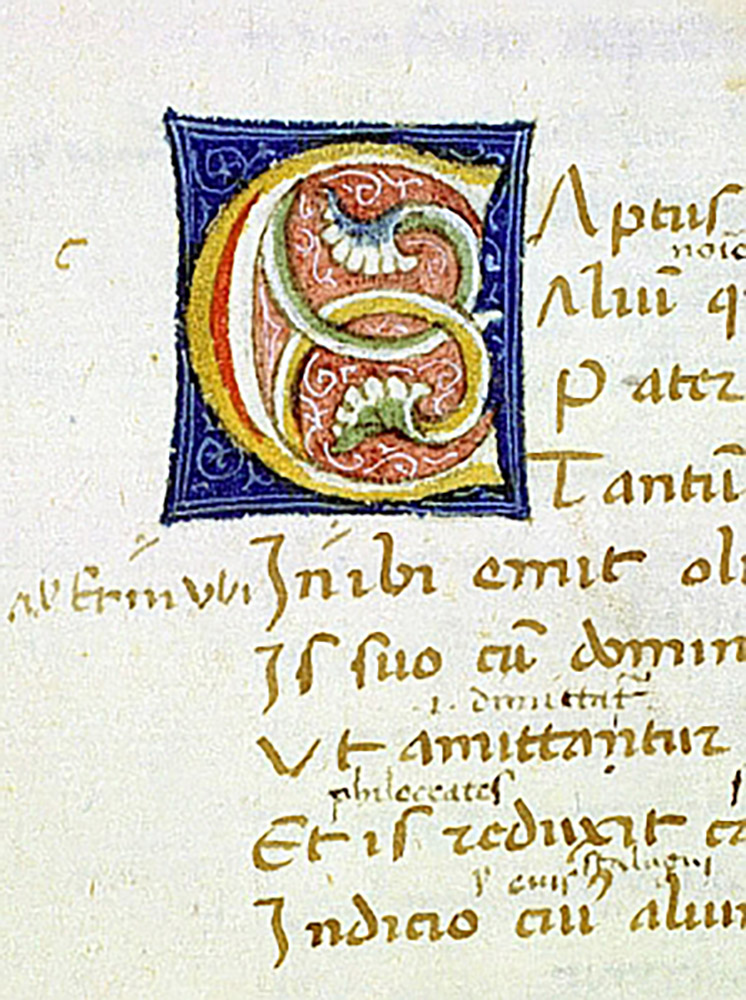 c
CAptus
noīe
Aliū q
Pater
Tantū
Inibi emit oli
Is suo cū domin
.i. dimittāt
Ut amittantur
philocrates
Et is reduxit ca
Indicio cuiꝰ aliu